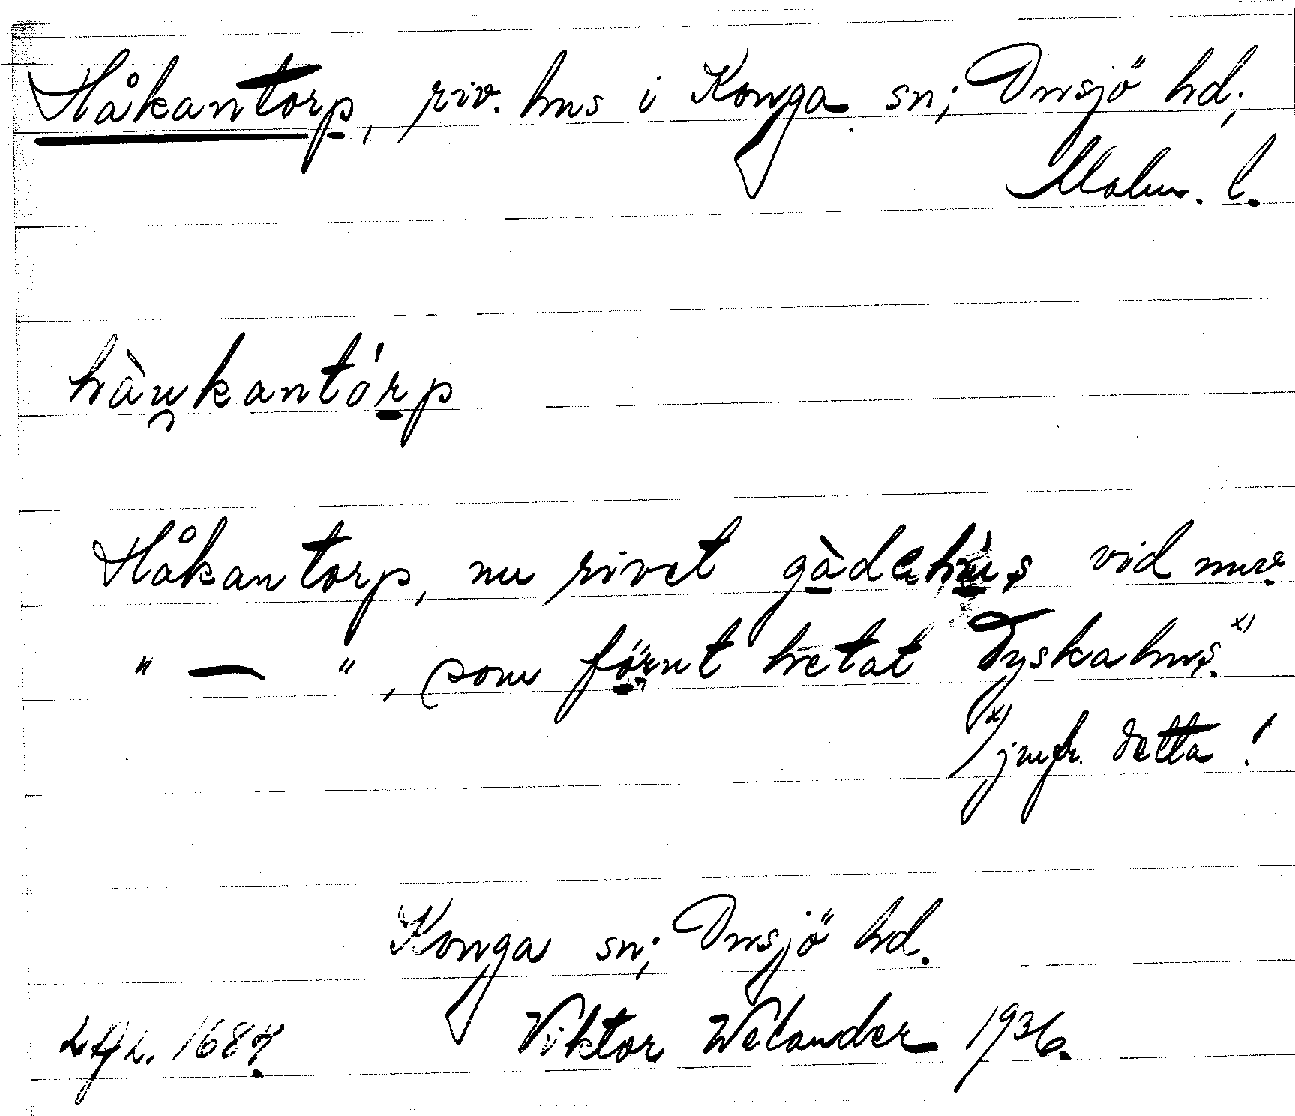 Håkantorp, riv. hus i Konga sn; Onsjö hd;
Malm. l.
hàu̯kantórp
Håkantorp, nu rivet gàdehùs vid nuv.
" — ", som förut hetat Tyskahus.x)
x) jmfr. detta!
Konga sn; Onsjö hd.
Viktor Welander 1936.